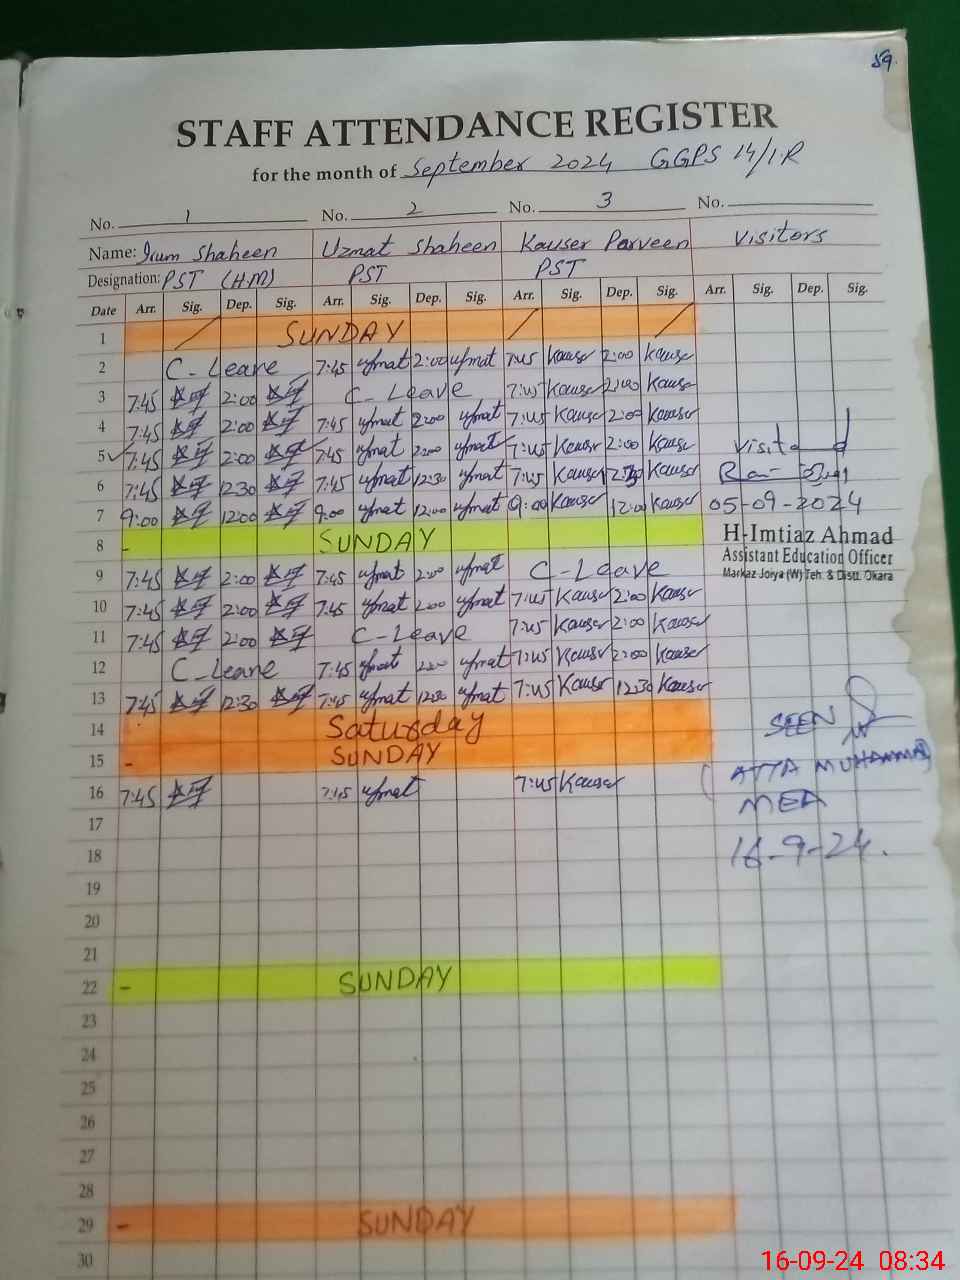 59
STAFF ATTENDANCE REGISTER
for the month of September 2024 GGPS 14/1.R
No. 1 No. 2 No. 3 No.
Name: Irum Shaheen Uzmat Shaheen Kauser Parveen Visitors
Designation: PST (HM) PST PST
Date Arr. Sig. Dep. Sig. Arr. Sig. Dep. Sig. Arr. Sig. Dep. Sig. Arr. Sig. Dep. Sig.
1 SUNDAY
2 C-Leave 7:45 uzmat 2:00 uzmat 7:45 Kauser 2:00 Kauser
3 7:45 2:00 C-Leave 7:45 Kauser 2:00 Kauser
4 7:45 2:00 7:45 uzmat 2:00 uzmat 7:45 Kauser 2:00 Kauser
5 7:45 2:00 7:45 uzmat 2:00 uzmat 7:45 Kauser 2:00 Kauser Visited
6 7:45 12:30 7:45 uzmat 12:30 uzmat 7:45 Kauser Kauser
7 9:00 12:00 9:00 uzmat 12:00 uzmat 9:00 Kauser 12:00 Kauser 05-09-2024
8 - SUNDAY H-Imtiaz Ahmad
Assistant Education Officer
Markaz Joiya (W) Teh. & Distt. Okara
9 7:45 2:00 7:45 uzmat 2:00 uzmat C-Leave
10 7:45 2:00 7:45 uzmat 2:00 uzmat 7:45 Kauser 2:00 Kauser
11 7:45 2:00 C-Leave 7:45 Kauser 2:00 Kauser
12 C-Leave 7:45 uzmat 2:00 uzmat 7:45 Kauser 2:00 Kauser
13 7:45 12:30 7:45 uzmat 12:30 uzmat 7:45 Kauser 12:30 Kauser
14 Saturday SEEN
15 - SUNDAY (ATTA MUHAMMAD)
16 7:45 7:45 uzmat 7:45 Kauser MEA
17
18 16-9-24.
19
20
21
22 - SUNDAY
23
24
25
26
27
28
29 - SUNDAY
30
16-09-24 08:34